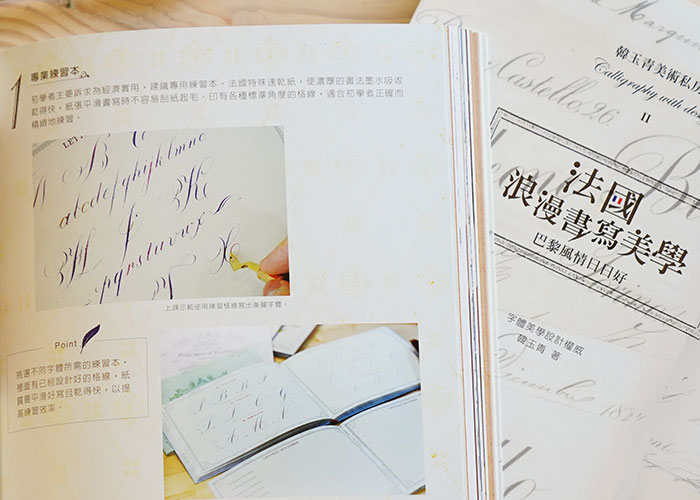 1
專業練習本
初學者主要訴求為經濟實用，建議專用練習本。法國特殊速乾紙，使濃厚的書法墨水吸收
乾得快，紙張平滑書寫時不容易刮紙起毛。印有各種標準角度的格線，適合初學者正確而
精細地練習。
LET
abcdefghijklmno
pqrstuvwxyz
上課示範使用練習格線寫出美麗字體。
Point
挑選不同字體所需的練習本，
裡面有已經設計好的格線，紙
質要平滑好寫且乾得快，以提
高練習效率。
韓玉青美術私房
Calligraphy with des
II
Castello 26.
法國
浪漫書寫美學
巴黎風情日日好
字體美學設計權威
韓玉青 著